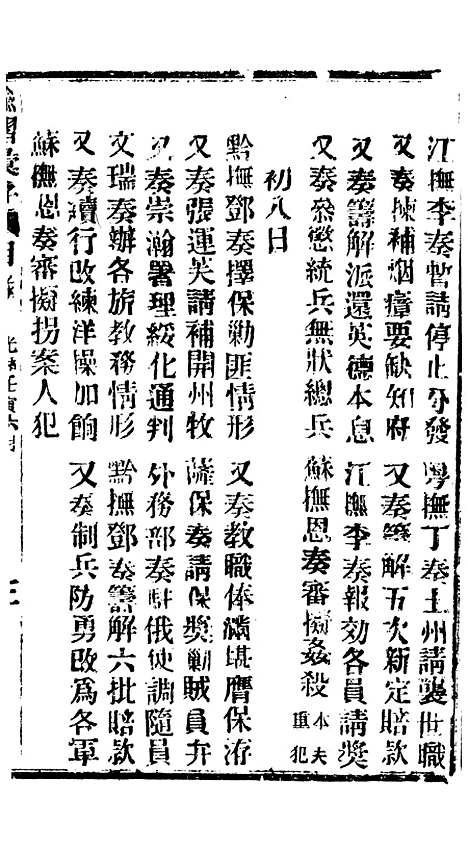 江撫李奏暫請停止分發
粵撫丁奏土州請襲世職
又奏揀補烟瘴要缺知府
又奏籌解五次新定賠款
又奏籌解派還英德本息
江撫李奏報効各員請奬
又奏叅懲統兵無狀總兵
蘇撫恩奏審擬姦殺本夫重犯
初八日
黔撫鄧奏擇保勦匪情形
又奏教職俸滿堪膺保洊
又奏張運芙請補開州牧
薩保奏請保奬勦賊員弁
又奏崇瀚署理綏化通判
外務部奏駐俄使調隨員
文瑞奏辦各旂教務情形
黔撫鄧奏籌解六批賠款
又奏續行改練洋操加餉
又奏制兵防勇改爲各軍
蘇撫恩奏審擬拐案人犯
諭摺彙存
目錄
光緒壬寅六月
三